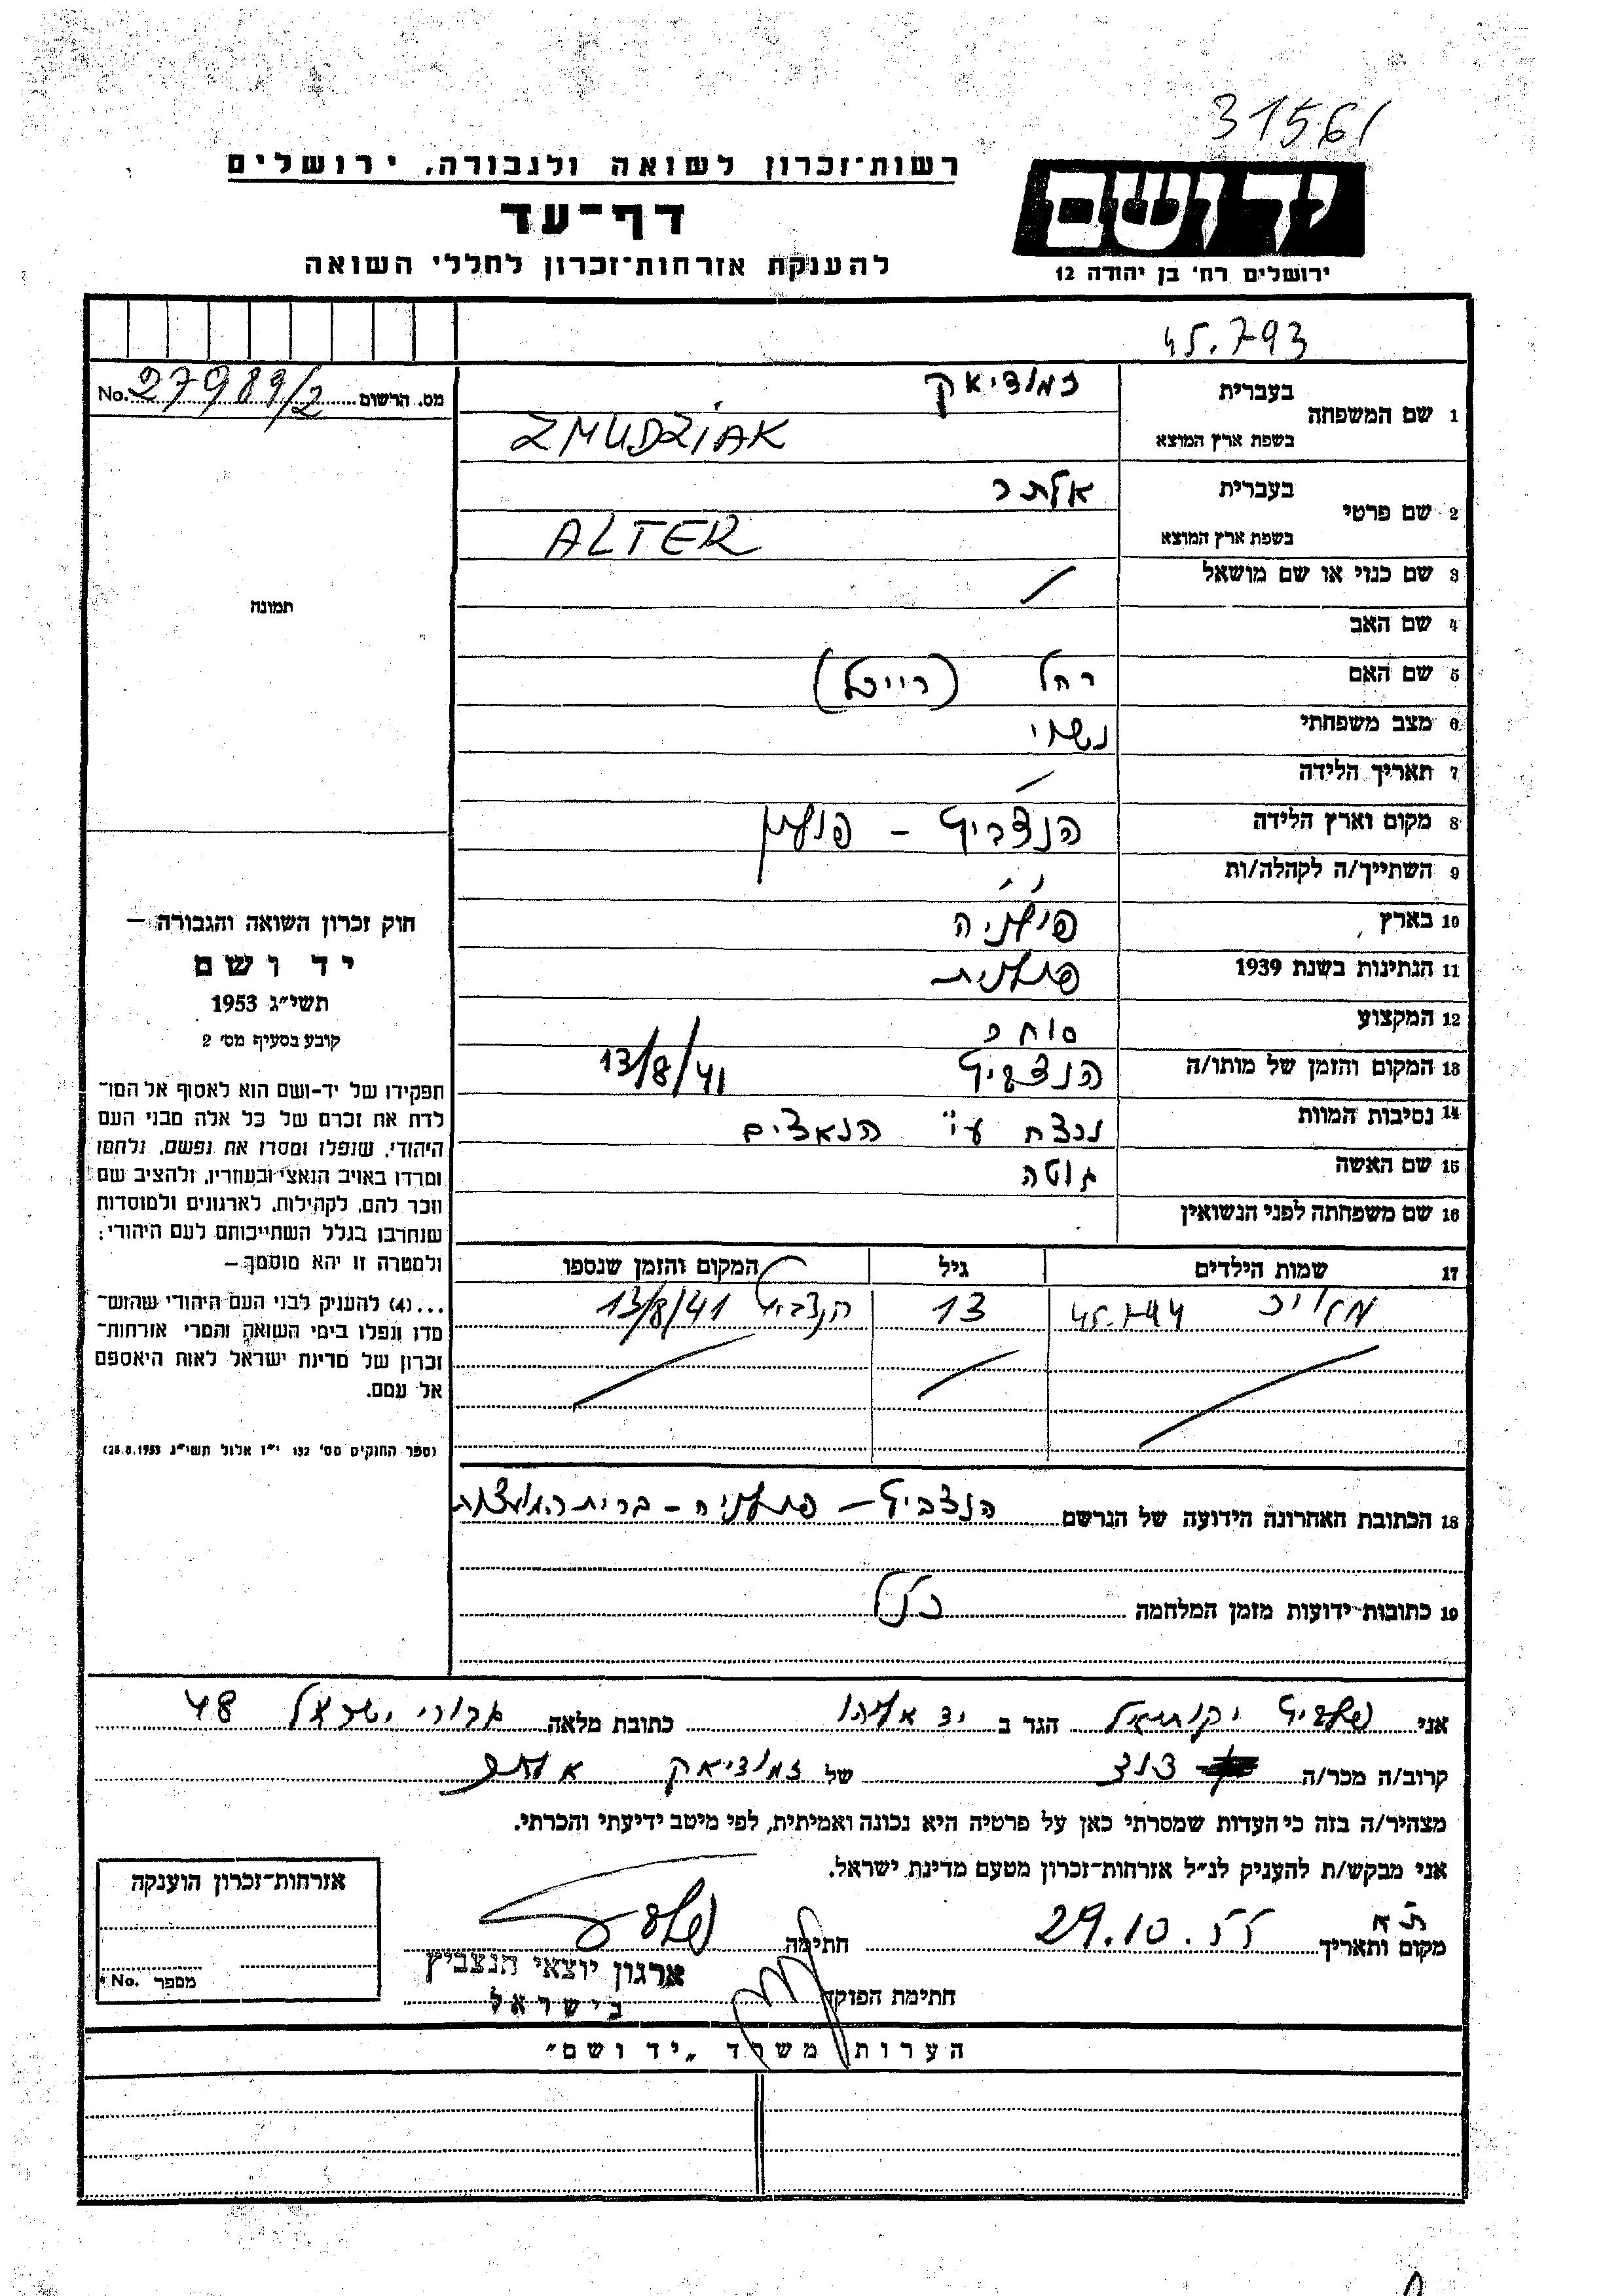 31561
רשות־זכרון לשואה ולגבורה, ירושלים
יד ושם
דף־עד
ירושלים רח' בן יהודה 12
להענקת אזרחות־זכרון לחללי השואה
45.793
מס. הרשום No. 27989/2
1 שם המשפחה
בעברית זמודיאק
בשפת ארץ המוצא ZMUDŻIAK
2 שם פרטי
בעברית אלתר
בשפת ארץ המוצא ALTER
3 שם כנוי או שם מושאל /
תמונה
4 שם האב
5 שם האם רחל (רייכל)
6 מצב משפחתי נשוי
7 תאריך הלידה /
8 מקום וארץ הלידה הנצביץ - פולין
9 השתייך/ה לקהלה/ות
10 בארץ פולניה
11 הנתינות בשנת 1939 פולנית
12 המקצוע סוחר
13 המקום והזמן של מותו/ה הנצביץ 13/8/41
14 נסיבות המוות נרצח ע"י הנאצים
15 שם האשה גוטה
16 שם משפחתה לפני הנשואין
חוק זכרון השואה והגבורה —
יד ושם
תשי"ג 1953
קובע בסעיף מס' 2
תפקידו של יד־ושם הוא לאסוף אל המו־
לדת את זכרם של כל אלה מבני העם
היהודי, שנפלו ומסרו את נפשם, נלחמו
ומרדו באויב הנאצי ובעוזריו, ולהציב שם
וזכר להם, לקהילות, לארגונים ולמוסדות
שנחרבו בגלל השתייכותם לעם היהודי;
ולמטרה זו יהא מוסמך —
...(4) להעניק לבני העם היהודי שהוש־
מדו ונפלו בימי השואה והמרי אזרחות־
זכרון של מדינת ישראל לאות היאספם
אל עמם.
(ספר החוקים מס' 132 י"ז אלול תשי"ג 28.8.1953)
17 שמות הילדים גיל המקום והזמן שנספו
45.794 13 הנצביץ 13/8/41
18 הכתובת האחרונה הידועה של הנרשם הנצביץ - פולניה - ברית המועצות
19 כתובות ידועות מזמן המלחמה כנ"ל
אני יקותיאל הגר ב יד אליהו כתובת מלאה גבורי ישראל 48
קרוב/ה מכר/ה של זמודיאק אלתר
מצהיר/ה בזה כי העדות שמסרתי כאן על פרטיה היא נכונה ואמיתית, לפי מיטב ידיעתי והכרתי.
אני מבקש/ת להעניק לנ"ל אזרחות־זכרון מטעם מדינת ישראל.
מקום ותאריך ת"א 29.10.55 חתימה
ארגון יוצאי הנצביץ
בישראל
חתימת הפוקד
אזרחות־זכרון הוענקה
מספר No.
הערות משרד „יד ושם"